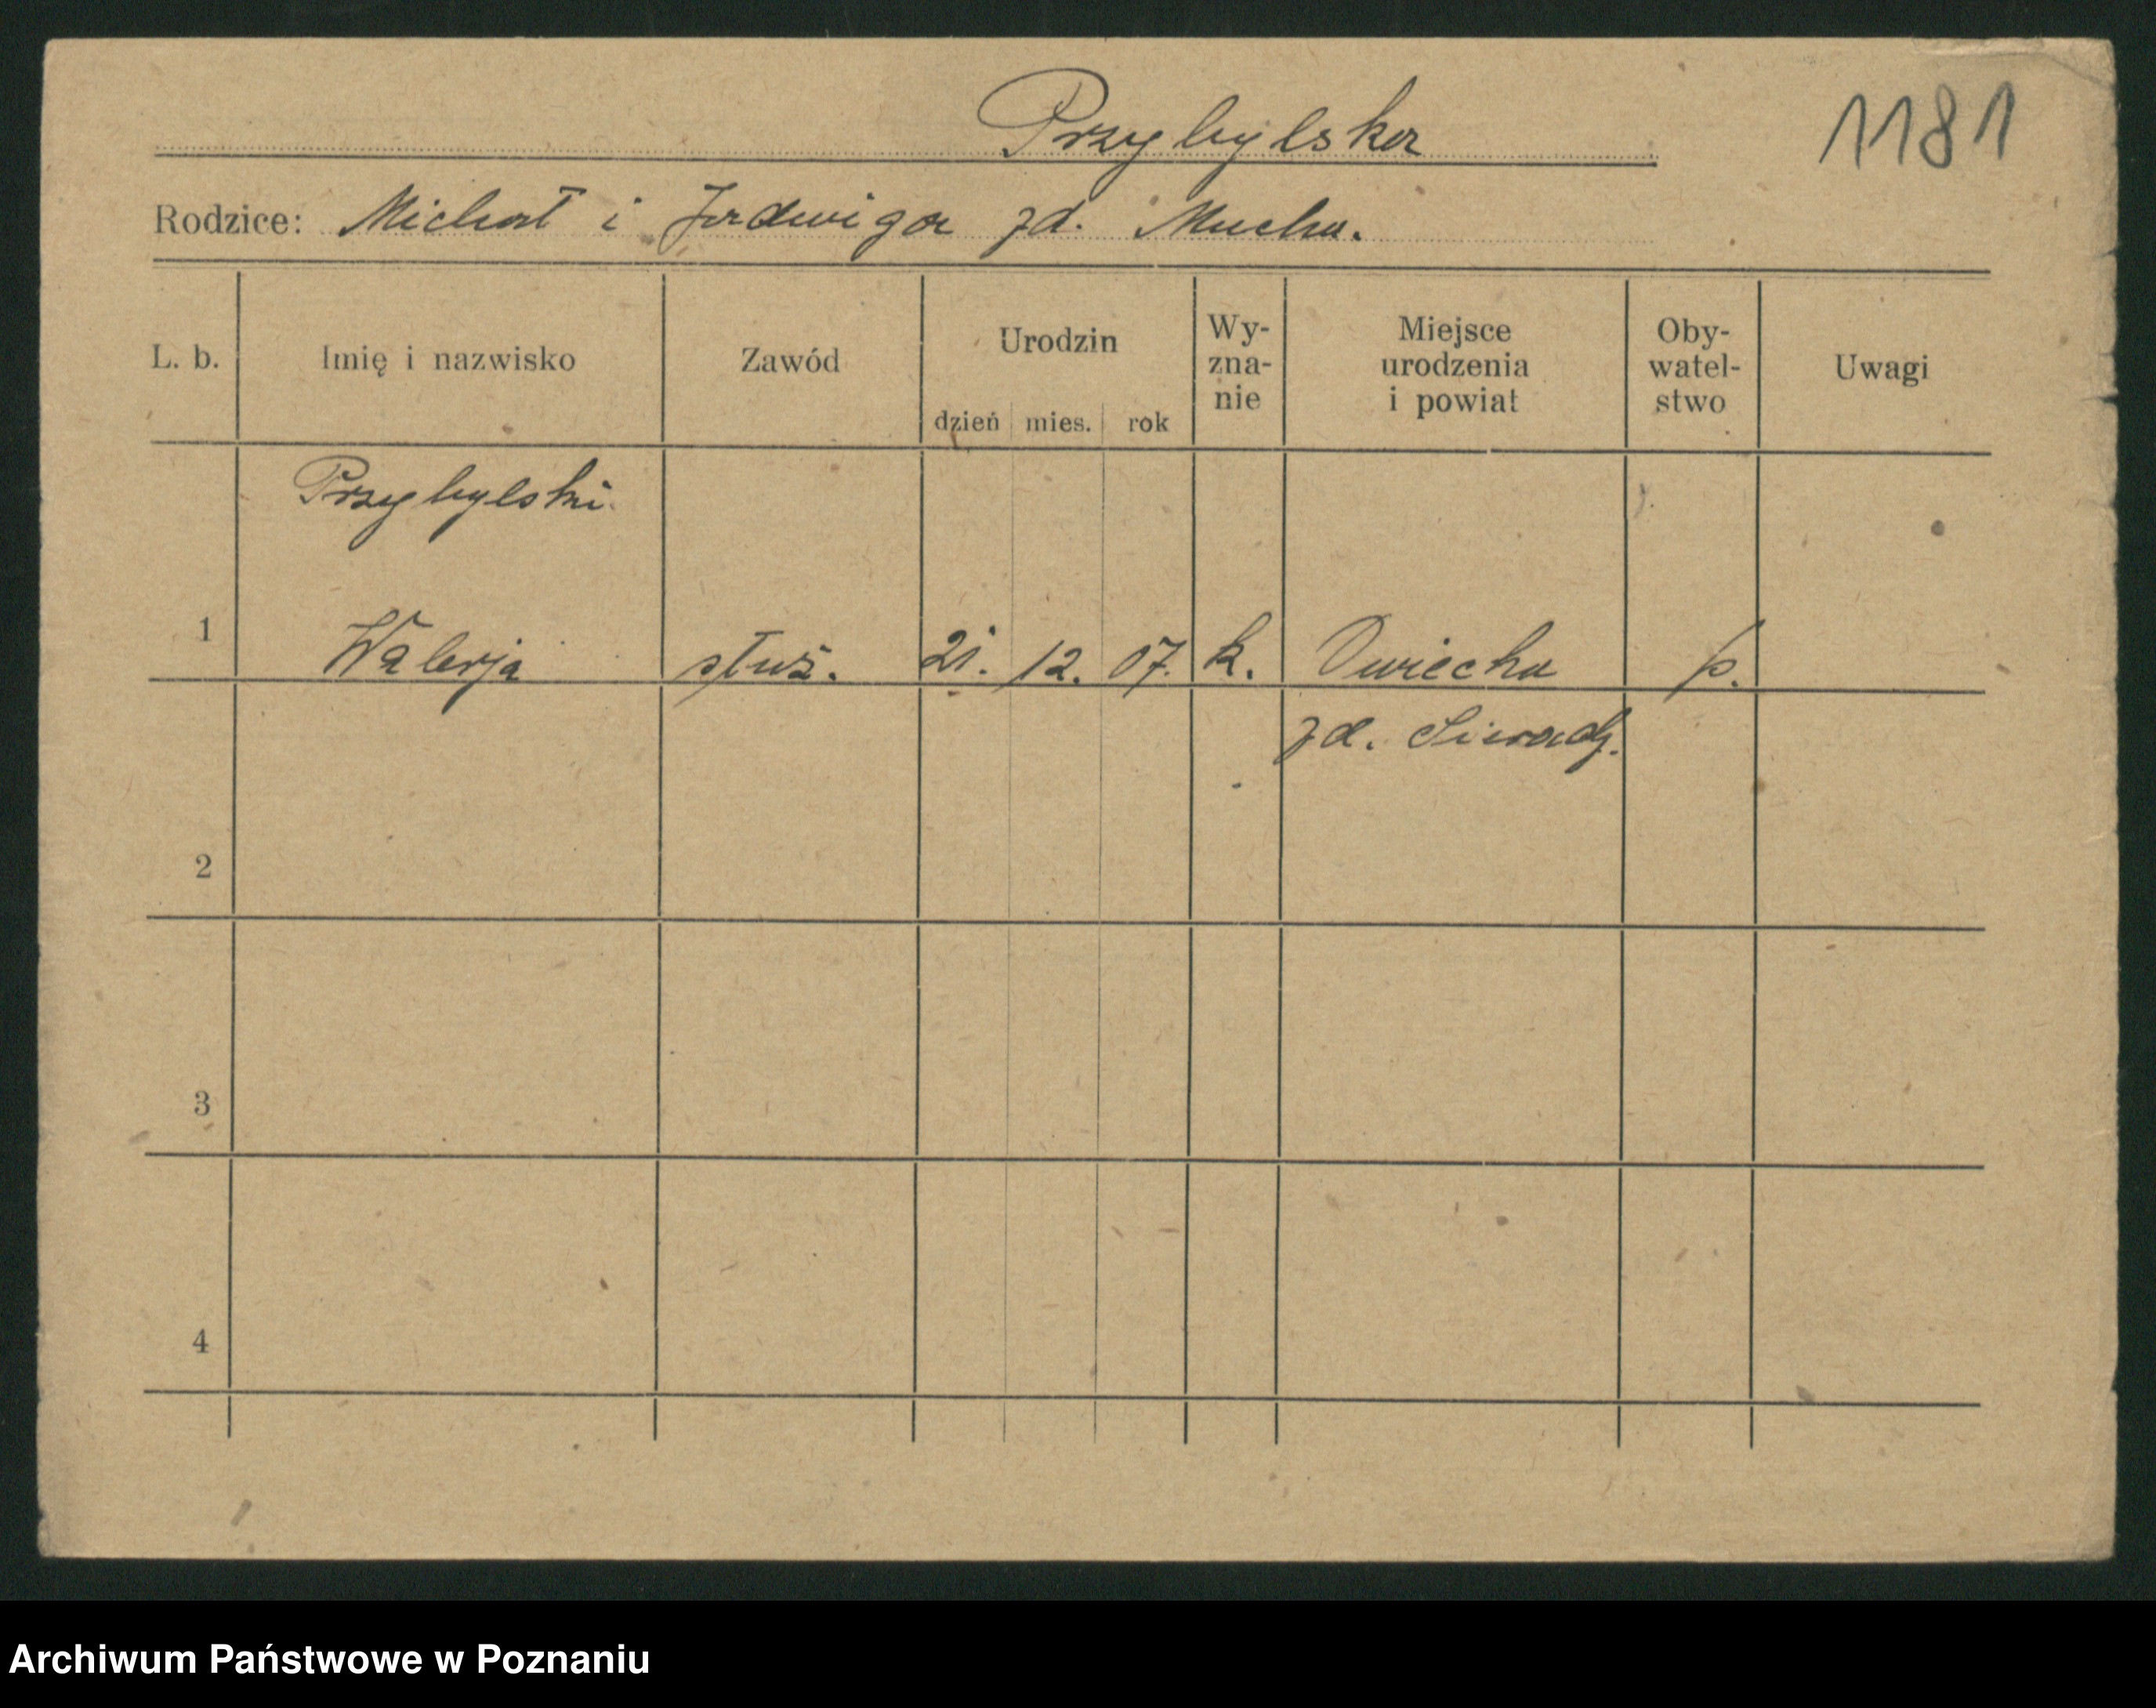 Przybylska
1181
Rodzice: Michał i Jadwiga zd. Mucha.
L. b. Imię i nazwisko Zawód Urodzin dzień mies. rok Wy-zna-nie Miejsce urodzenia i powiat Oby-watel-stwo Uwagi
Przybylski
1 Walerja służ. 21. 12. 07. k. Owiecha p.
2
3
4
Archiwum Państwowe w Poznaniu